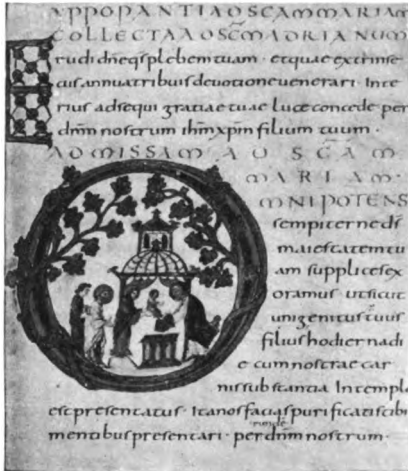 YPPOPANTI AD SCAM MARIAM
COLLECTA AD SCM ADRIANUM
Erudi dne qs plebem tuam · et quae extrinse
cus annua tribuis devotione venerari · Inte
rius adsequi gratiae tuae luce concede · per
dnm nostrum ihm xpm filium tuum ·
AD MISSAM AD SCAM
MARIAM ·
OMNIPOTENS
sempiterne ds
maiestatem tu
am supplices ex
oramus · ut sicut
unigenitus tuus
filius hodierna di
e cum nostrae car
nis substantia · In templo
est praesentatus · Ita nos facias purificatis tibi
mentibus praesentari · per dnm nostrum ·